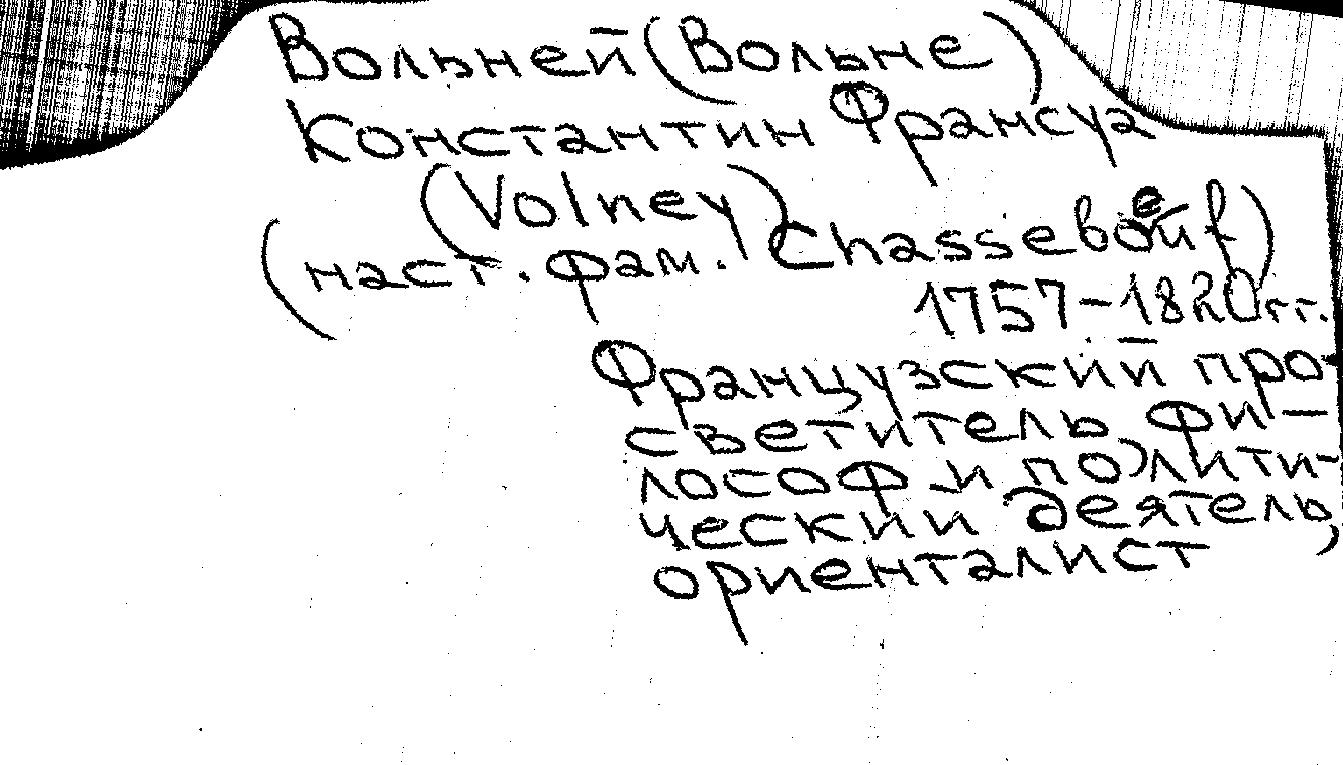 Вольней (Вольне)
Константин Франсуа
(Volney)
(наст. фам. Chasseboeuf)
1757-1820гг.
Французский про-
светитель, фи-
лософ и полити-
ческий деятель,
ориенталист